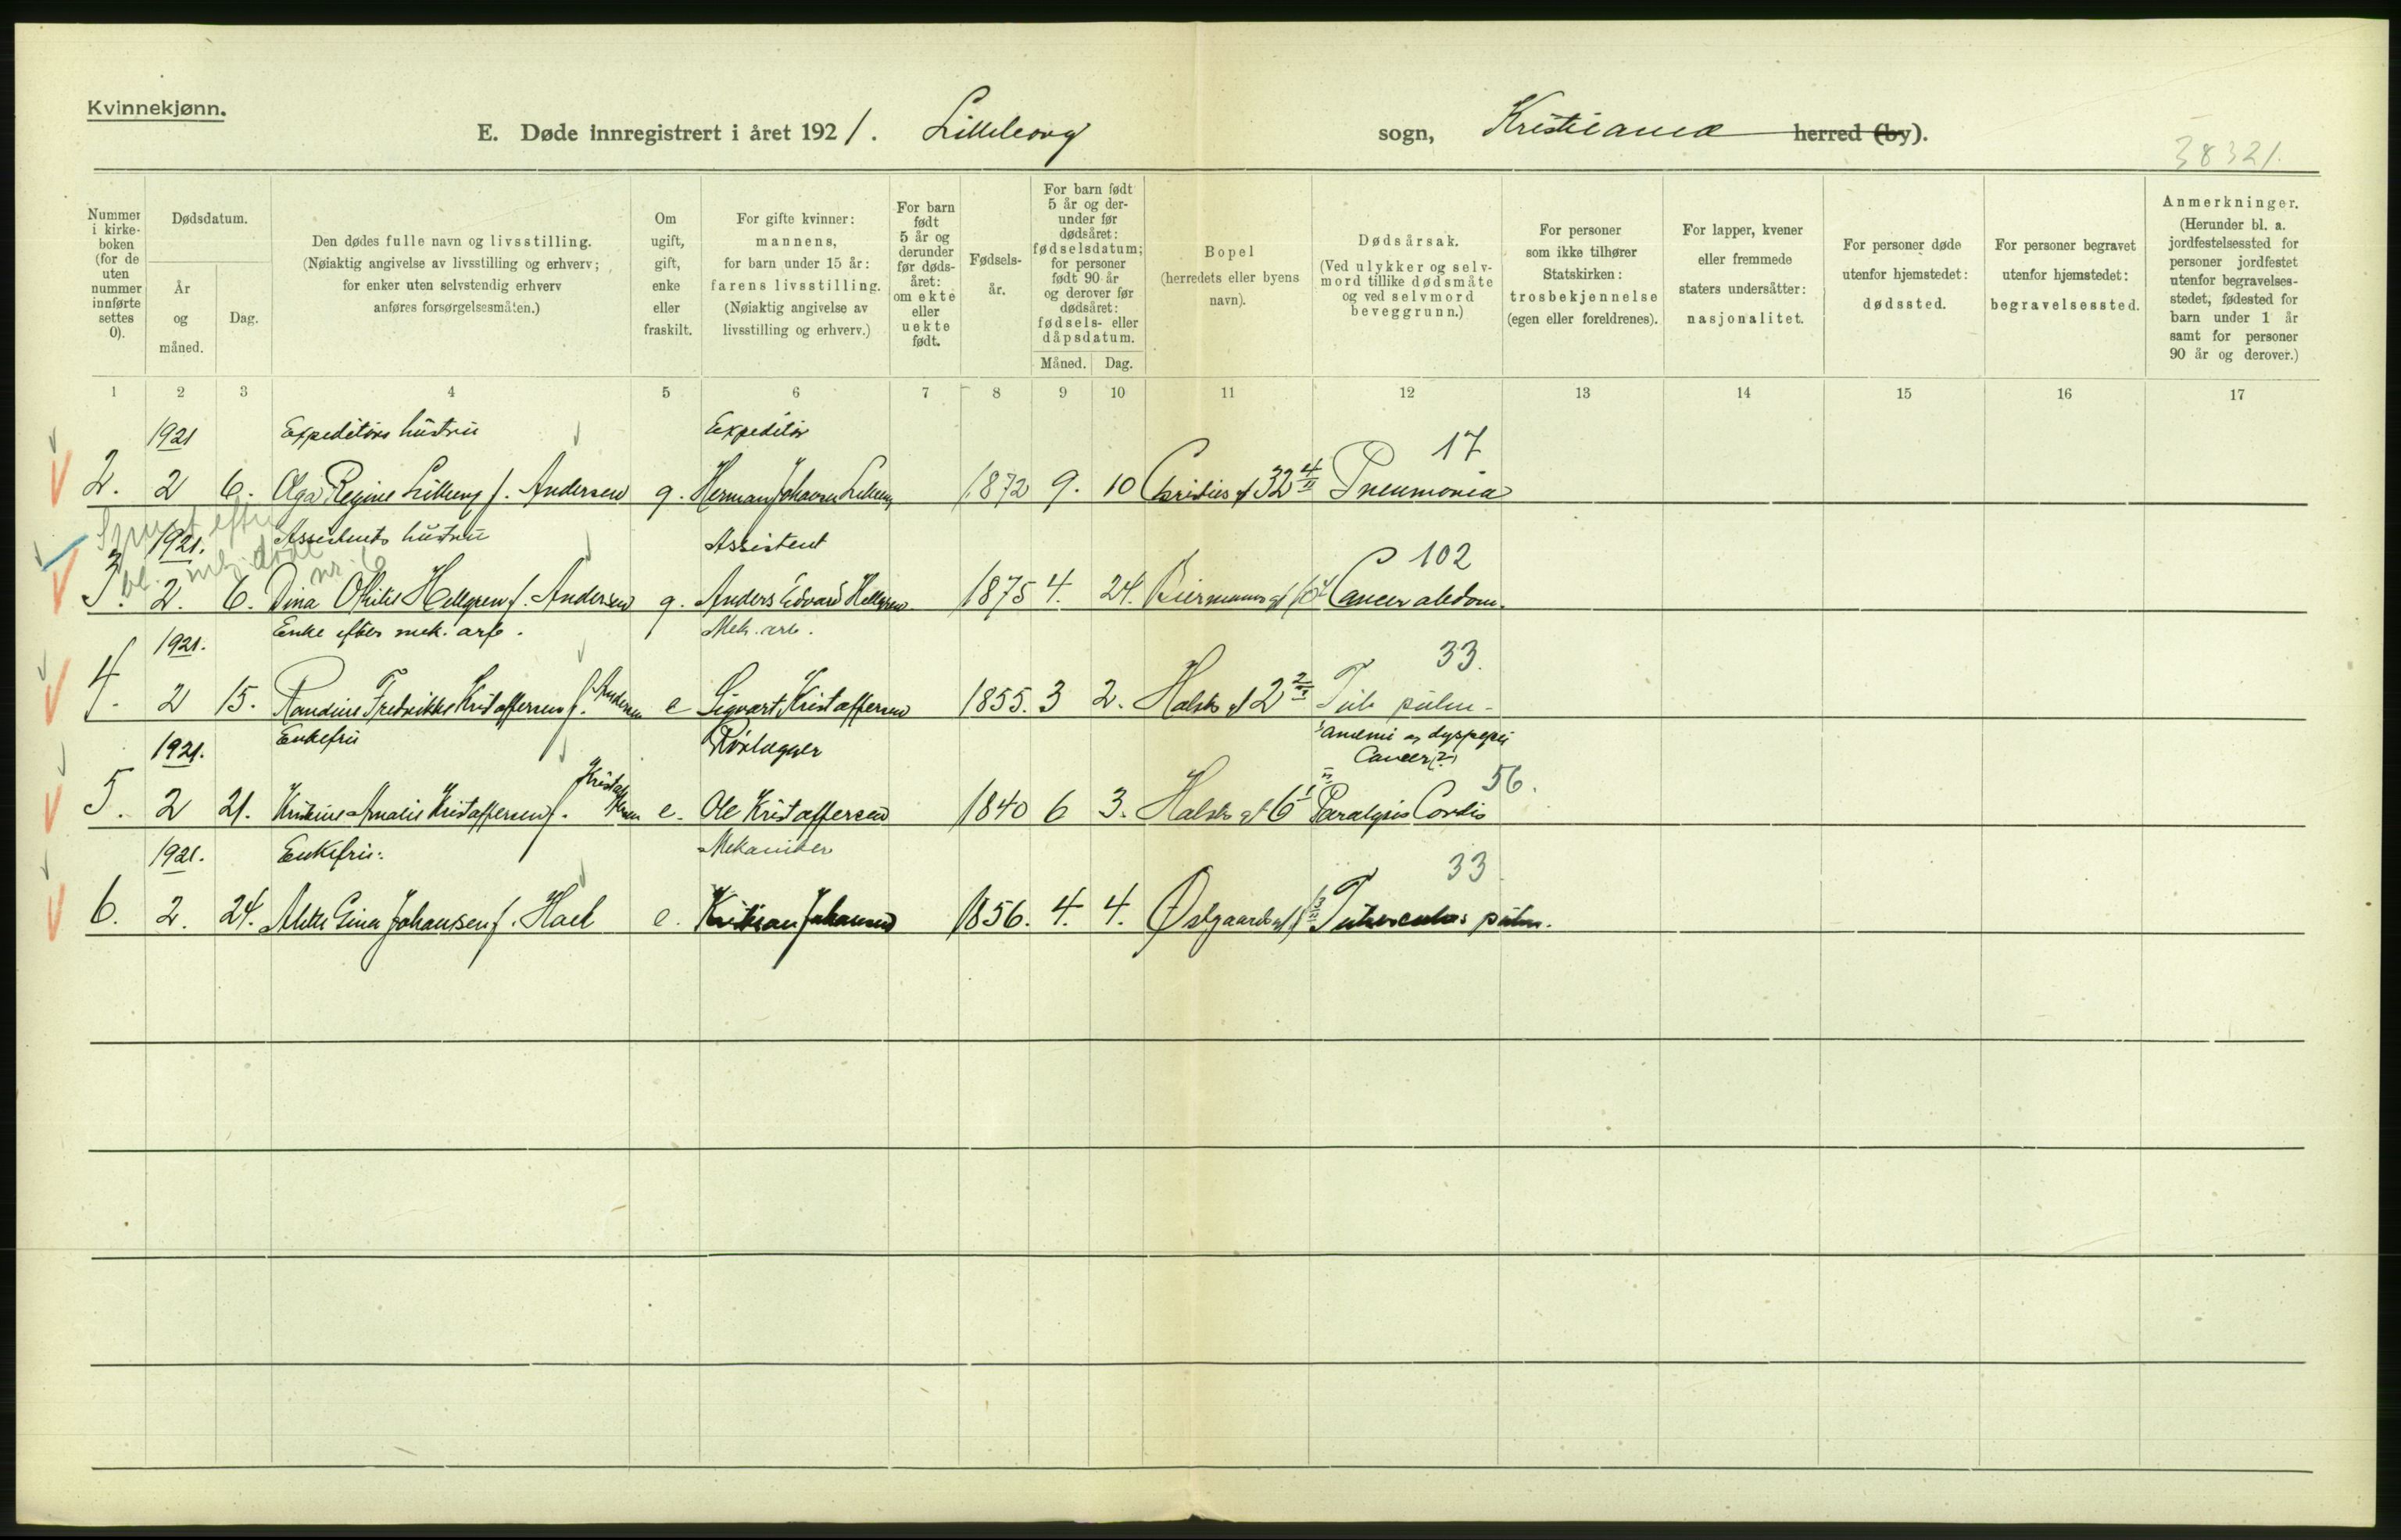 Kvinnekjønn.
E. Døde innregistrert i året 1921. Lilleborg sogn, Kristiania herred (by).
38321.
Nummer i kirkeboken (for de uten nummer innførte settes 0).
Dødsdatum.
År og måned.
Dag.
Den dødes fulle navn og livsstilling.
(Nøiaktig angivelse av livsstilling og erhverv;
for enker uten selvstendig erhverv
anføres forsørgelsesmåten.)
Om ugift, gift, enke eller fraskilt.
For gifte kvinner:
mannens,
for barn under 15 år:
farens livsstilling.
(Nøiaktig angivelse av
livsstilling og erhverv.)
For barn født 5 år og derunder før dødsåret: om ekte eller uekte født.
Fødselsår.
For barn født 5 år og derunder før dødsåret: fødselsdatum; for personer født 90 år og derover før dødsåret: fødsels- eller dåpsdatum.
Måned.
Dag.
Bopel
(herredets eller byens
navn).
Dødsårsak.
(Ved ulykker og selvmord tillike dødsmåte og ved selvmord beveggrunn.)
For personer
som ikke tilhører
Statskirken:
trosbekjennelse
(egen eller foreldrenes).
For lapper, kvener
eller fremmede
staters undersåtter:
nasjonalitet.
For personer døde
utenfor hjemstedet:
dødssted.
For personer begravet
utenfor hjemstedet:
begravelsessted.
Anmerkninger.
(Herunder bl. a.
jordfestelsessted for
personer jordfestet
utenfor begravelses-
stedet, fødested for
barn under 1 år
samt for personer
90 år og derover.)
1 2 3 4 5 6 7 8 9 10 11 12 13 14 15 16 17
1921 Expeditørs hustru Expeditør 17
2. 2 6. Olga Regine Lilleeng f. Andersen g. Herman Johansen Lilleeng 1872 9. 10 Christies gt 32 4/II Pneumonia
1921. Assistents hustru Assistent 102
3. 2. 6. Dina Othilie Hellgren f. Andersen g. Anders Edvard Hellgren 1875 4. 24. Biermanns gt Cancer abdom.
nr. 6
1921. Enke efter mek. arb. Mek. arb. 33.
4. 2 15. Randine Fredrikke Kristoffersen f. Andersen e Sigvart Kristoffersen 1855. 3 2. Hals gt 2 Tub pulm-
1921. Enkefru Rørlegger Anemi og dyspepsi
Cancer(?) 56.
5. 2 21. Kristine Amalie Kristoffersen f. e. Ole Kristoffersen 1840 6 3. Hals gt 6 Paralysis Cordis
1921. Enkefru. Mekaniker 33
6. 2. 24. Gina Johansen f. e. Kristian Johansen 1856. 4. 4. Østgaards gt Tuberculos pulm.